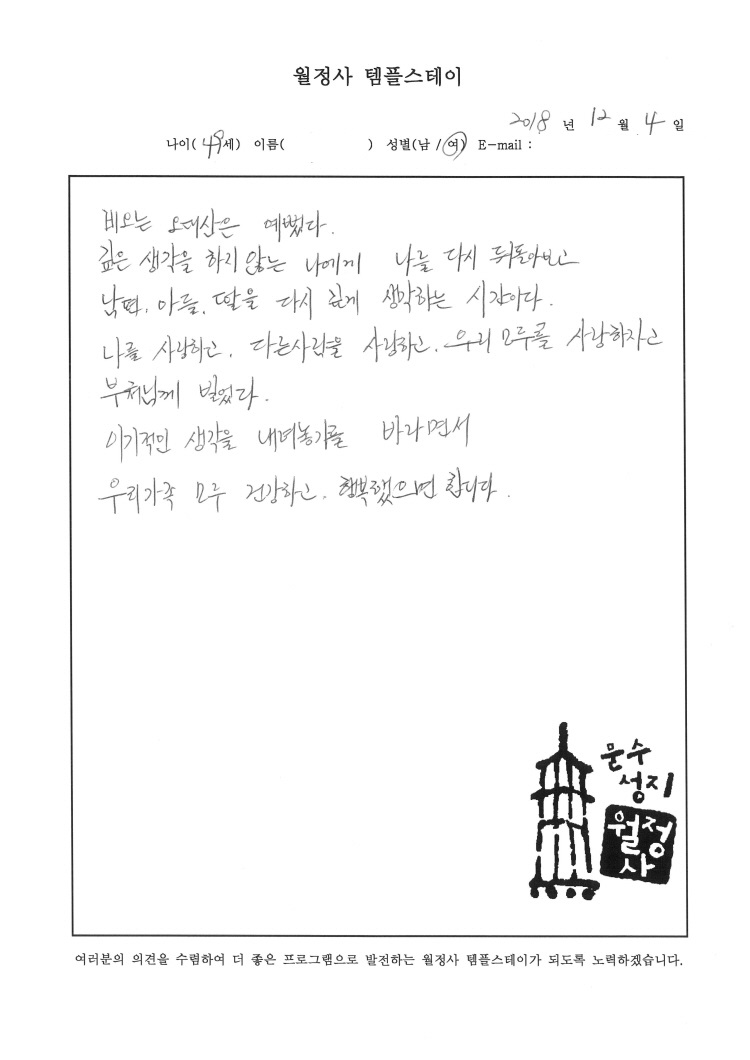 월정사 템플스테이
2018 년 12 월 4 일
나이( 49세) 이름( ) 성별(남 / 여) E-mail :
비오는 오대산은 예뻤다.
깊은 생각을 하지 않는 나에게 나를 다시 뒤돌아보고
남편, 아들, 딸을 다시 깊게 생각하는 시간이다.
나를 사랑하고, 다른사람을 사랑하고, 우리 모두를 사랑하자고
부처님께 빌었다.
이기적인 생각을 내려놓기를 바라면서
우리가족 모두 건강하고, 행복했으면 합니다.
문수
성지
월정
사
여러분의 의견을 수렴하여 더 좋은 프로그램으로 발전하는 월정사 템플스테이가 되도록 노력하겠습니다.